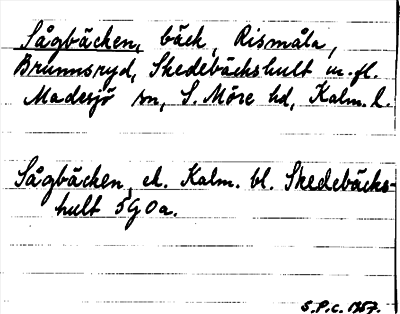 Sågbäcken, bäck, Rismåla,
Brunnsryd, Skedebäckshult m.fl.
Madesjö sn, S. Möre hd, Kalm. l.
Sågbäcken, ek. Kalm. bl. Skedebäcks-
hult 5G0a.
S.P.C. 1957.